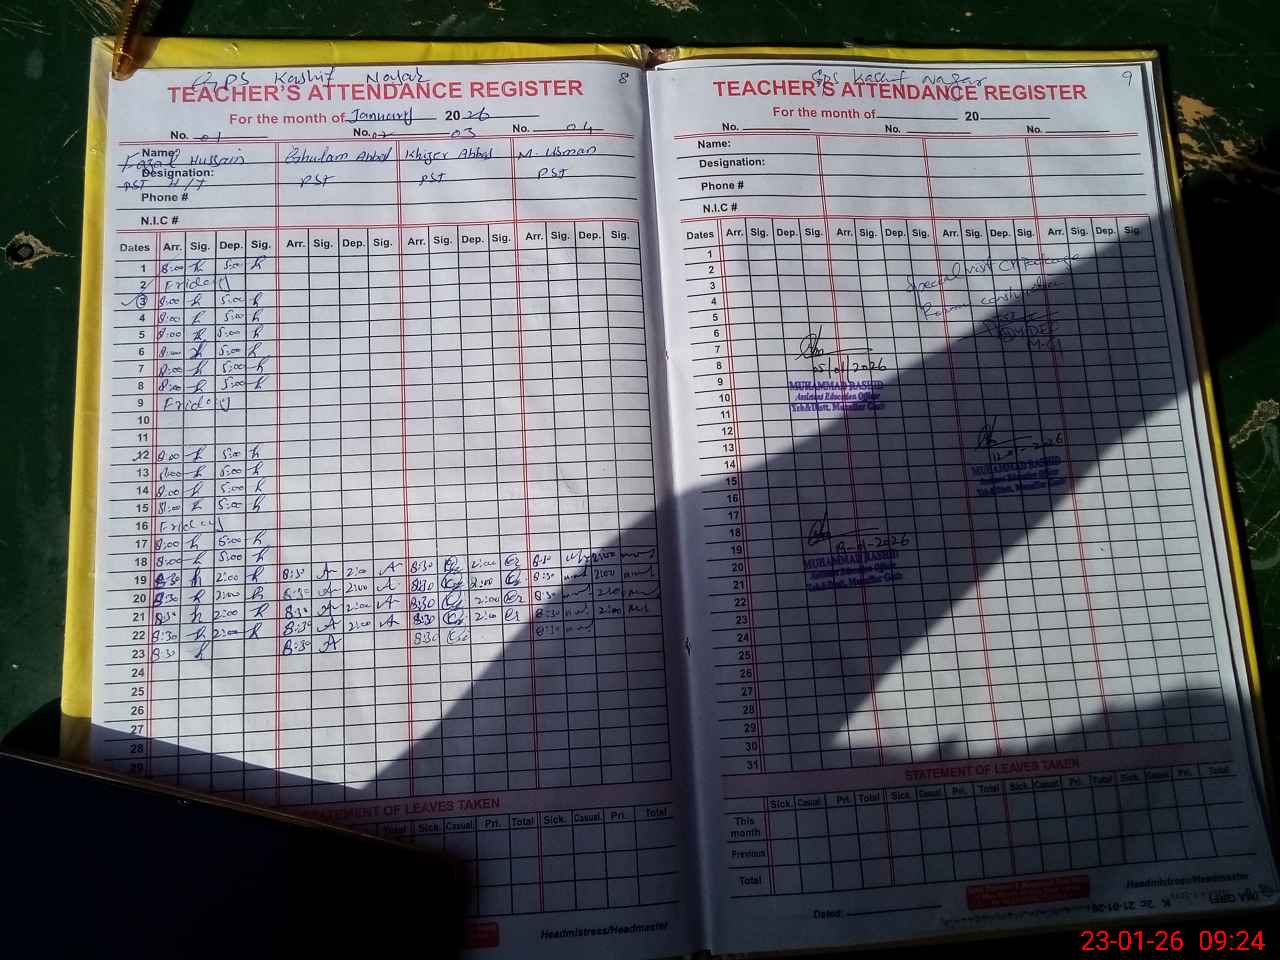 GPS Kashif Nagar 8
TEACHER'S ATTENDANCE REGISTER
For the month of January 2026
No. 01 No. 02 03 No. 04
Name: Fazal Hussain Ghulam Abbas Khizer Abbas M. Usman
Designation: PST H/T PST PST PST
Phone #
N.I.C #
Dates Arr. Sig. Dep. Sig. Arr. Sig. Dep. Sig. Arr. Sig. Dep. Sig. Arr. Sig. Dep. Sig.
1 8:00 5:00
2 Friday
3 8:00 5:00
4 8:00 5:00
5 8:00 5:00
6 8:00 5:00
7 8:00 5:00
8 8:00 5:00
9 Friday
10
11
12 8:00 5:00
13 8:00 5:00
14 8:00 5:00
15 8:00 5:00
16 Friday
17 8:00 5:00
18 8:00 5:00
19 8:30 2:00 8:30 2:00 8:30 2:00 8:30 2:00
20 8:30 2:00 8:30 2:00 8:30 2:00 8:30 2:00
21 8:30 2:00 8:30 2:00 8:30 2:00 8:30 2:00
22 8:30 2:00 8:30 2:00 8:30 2:00 8:30 2:00
23 8:30 8:30 8:30 8:30
24
25
26
27
28
29
STATEMENT OF LEAVES TAKEN
Total Sick. Casual. Pri. Total Sick. Casual. Pri. Total
Headmistress/Headmaster
GPS Kashif Nagar 9
TEACHER'S ATTENDANCE REGISTER
For the month of 20
No. No. No.
Name:
Designation:
Phone #
N.I.C #
Dates Arr. Sig. Dep. Sig. Arr. Sig. Dep. Sig. Arr. Sig. Dep. Sig. Arr. Sig. Dep. Sig.
1
2
3
4
5
6
7
8
9
10
11
12
13
14
15
16
17
18
19
20
21
22
23
24
25
26
27
28
29
30
31
Special visit
Room construction
05/01/2026
MUHAMMAD RASHID
Assistant Education Officer
MUHAMMAD RASHID
Assistant Education Officer
MUHAMMAD RASHID
Assistant Education Officer
STATEMENT OF LEAVES TAKEN
Sick. Casual. Pri. Total Sick. Casual. Pri. Total Sick. Casual. Pri. Total
This month
Previous
Total
Dated:
Headmistress/Headmaster
23-01-26 09:24